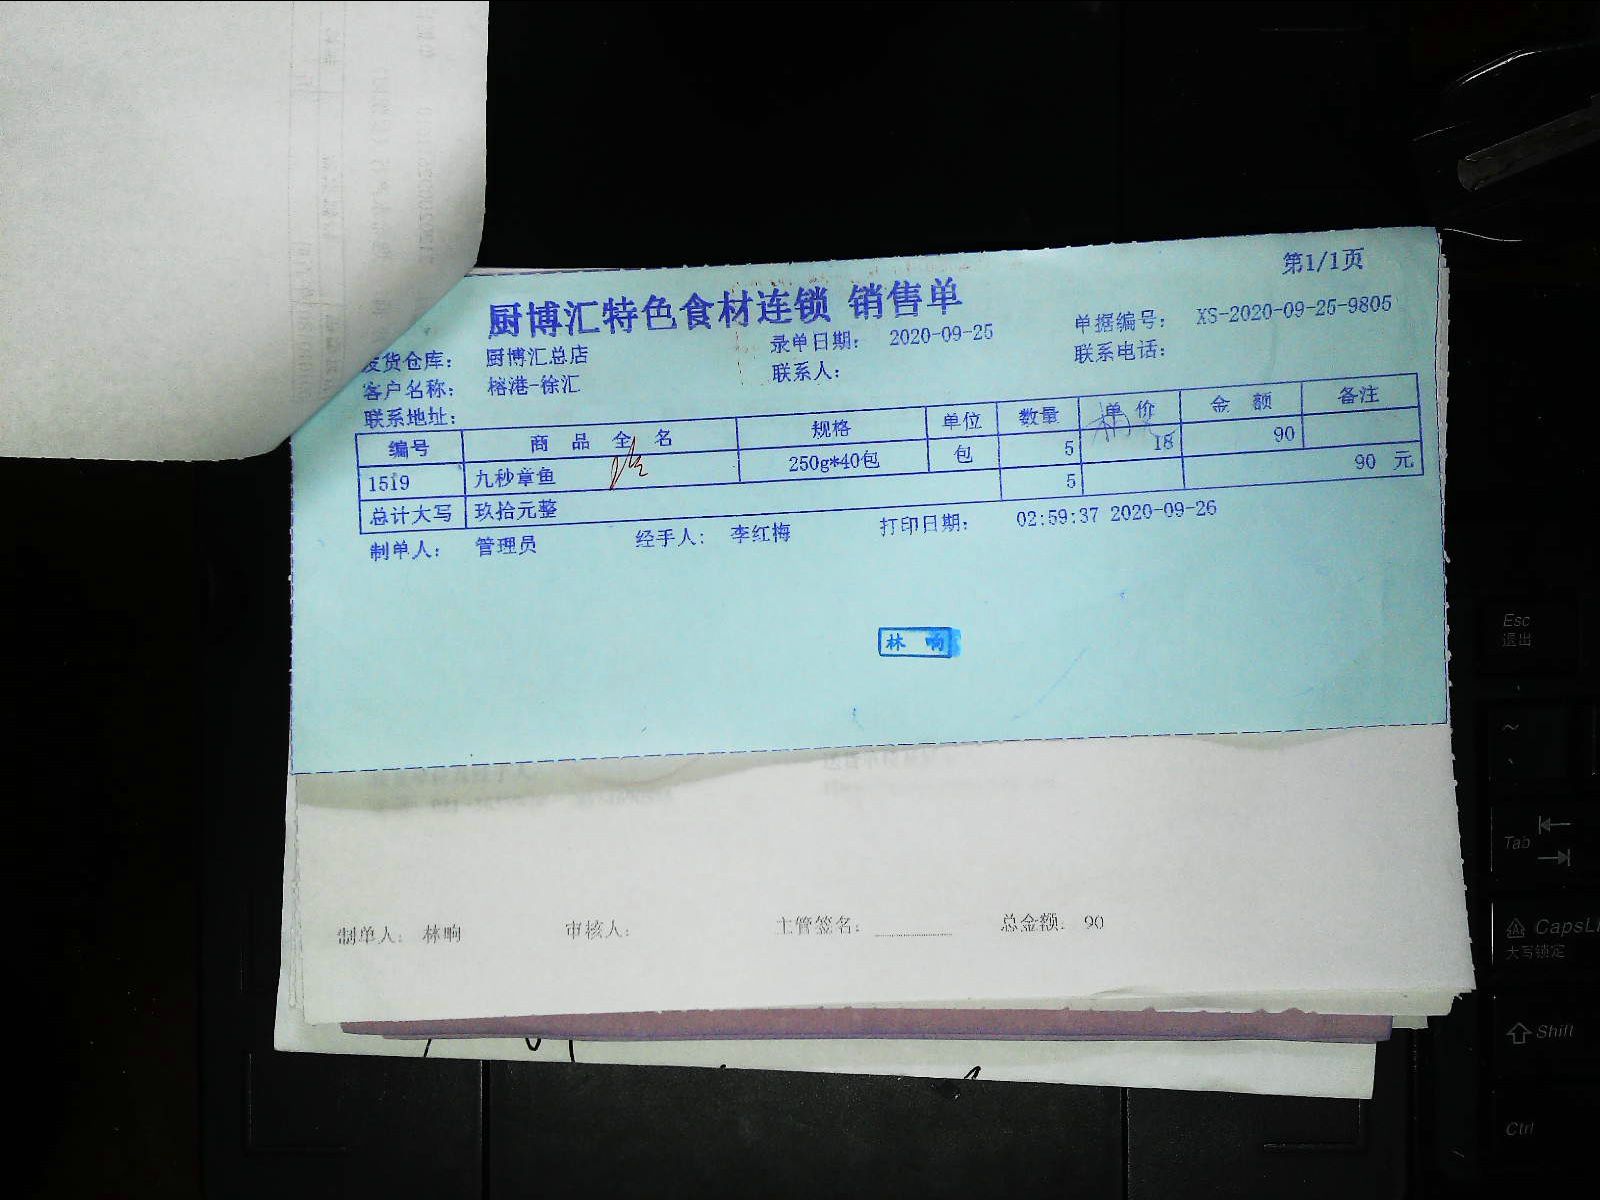 第1/1页
厨博汇特色食材连锁 销售单
发货仓库: 厨博汇总店 录单日期: 2020-09-25 单据编号: XS-2020-09-25-9805
客户名称: 榕港-徐汇 联系人: 联系电话:
联系地址:
编号 商品全名 规格 单位 数量 单价 金额 备注
1519 九秒章鱼 250g*40包 包 5 18 90
总计大写 玖拾元整 5 90 元
制单人: 管理员 经手人: 李红梅 打印日期: 02:59:37 2020-09-26
林 响
制单人: 林响 审核人: 主管签名: 总金额: 90
Esc
退出
~
Tab
CapsL
大写锁定
Shift
Ctrl